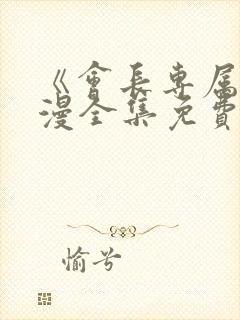 《會長專属
漫全集免費
愉兮